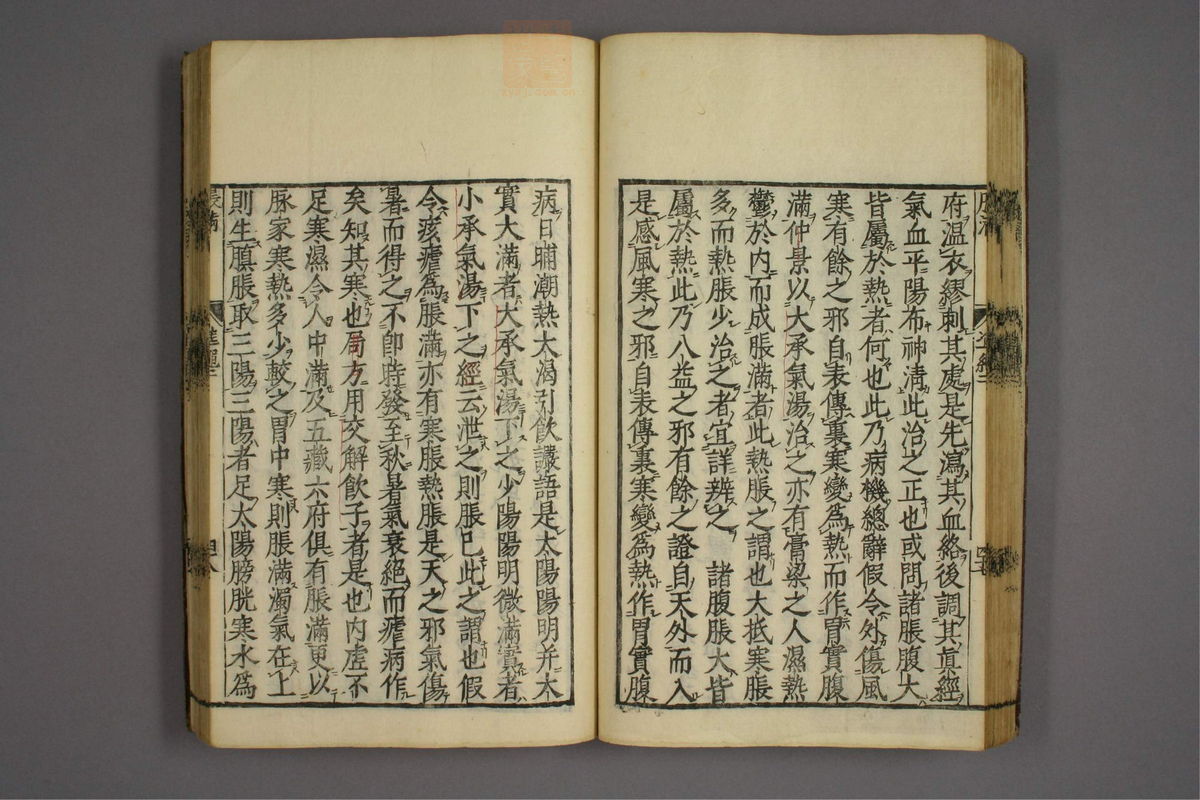 府溫衣繆刺其處是先瀉其血絡後調其眞經
氣血平陽布神淸此治之正也或問諸脹腹大
皆屬於熱者何也此乃病機總辭假令外傷風
寒有餘之邪自表傳裏寒變爲熱而作胃實腹
滿仲景以大承氣湯治之亦有膏粱之人濕熱
鬱於内而成脹滿者此熱脹之謂也大抵寒脹
多而熱脹少治之者宜詳辨之 諸腹脹大皆
屬於熱此乃八益之邪有餘之證自天外而入
是感風寒之邪自表傳裏寒變爲熱作胃實腹
病日晡潮熱大渴引飲讝語是太陽陽明并大
實大滿者大承氣湯下之少陽陽明微滿實者
小承氣湯下之經云泄之則脹已此之謂也假
令痎瘧爲脹滿亦有寒脹熱脹是天之邪氣傷
暑而得之不卽時發至秋暑氣衰絕而瘧病作
矣知其寒也局方用交解飲子者是也内虛不
足寒濕令人中滿及五藏六府俱有脹滿更以
脉家寒熱多少較之胃中寒則脹滿濁氣在上
則生䐜脹取三陽三陽者足太陽膀胱寒水爲
脹滿